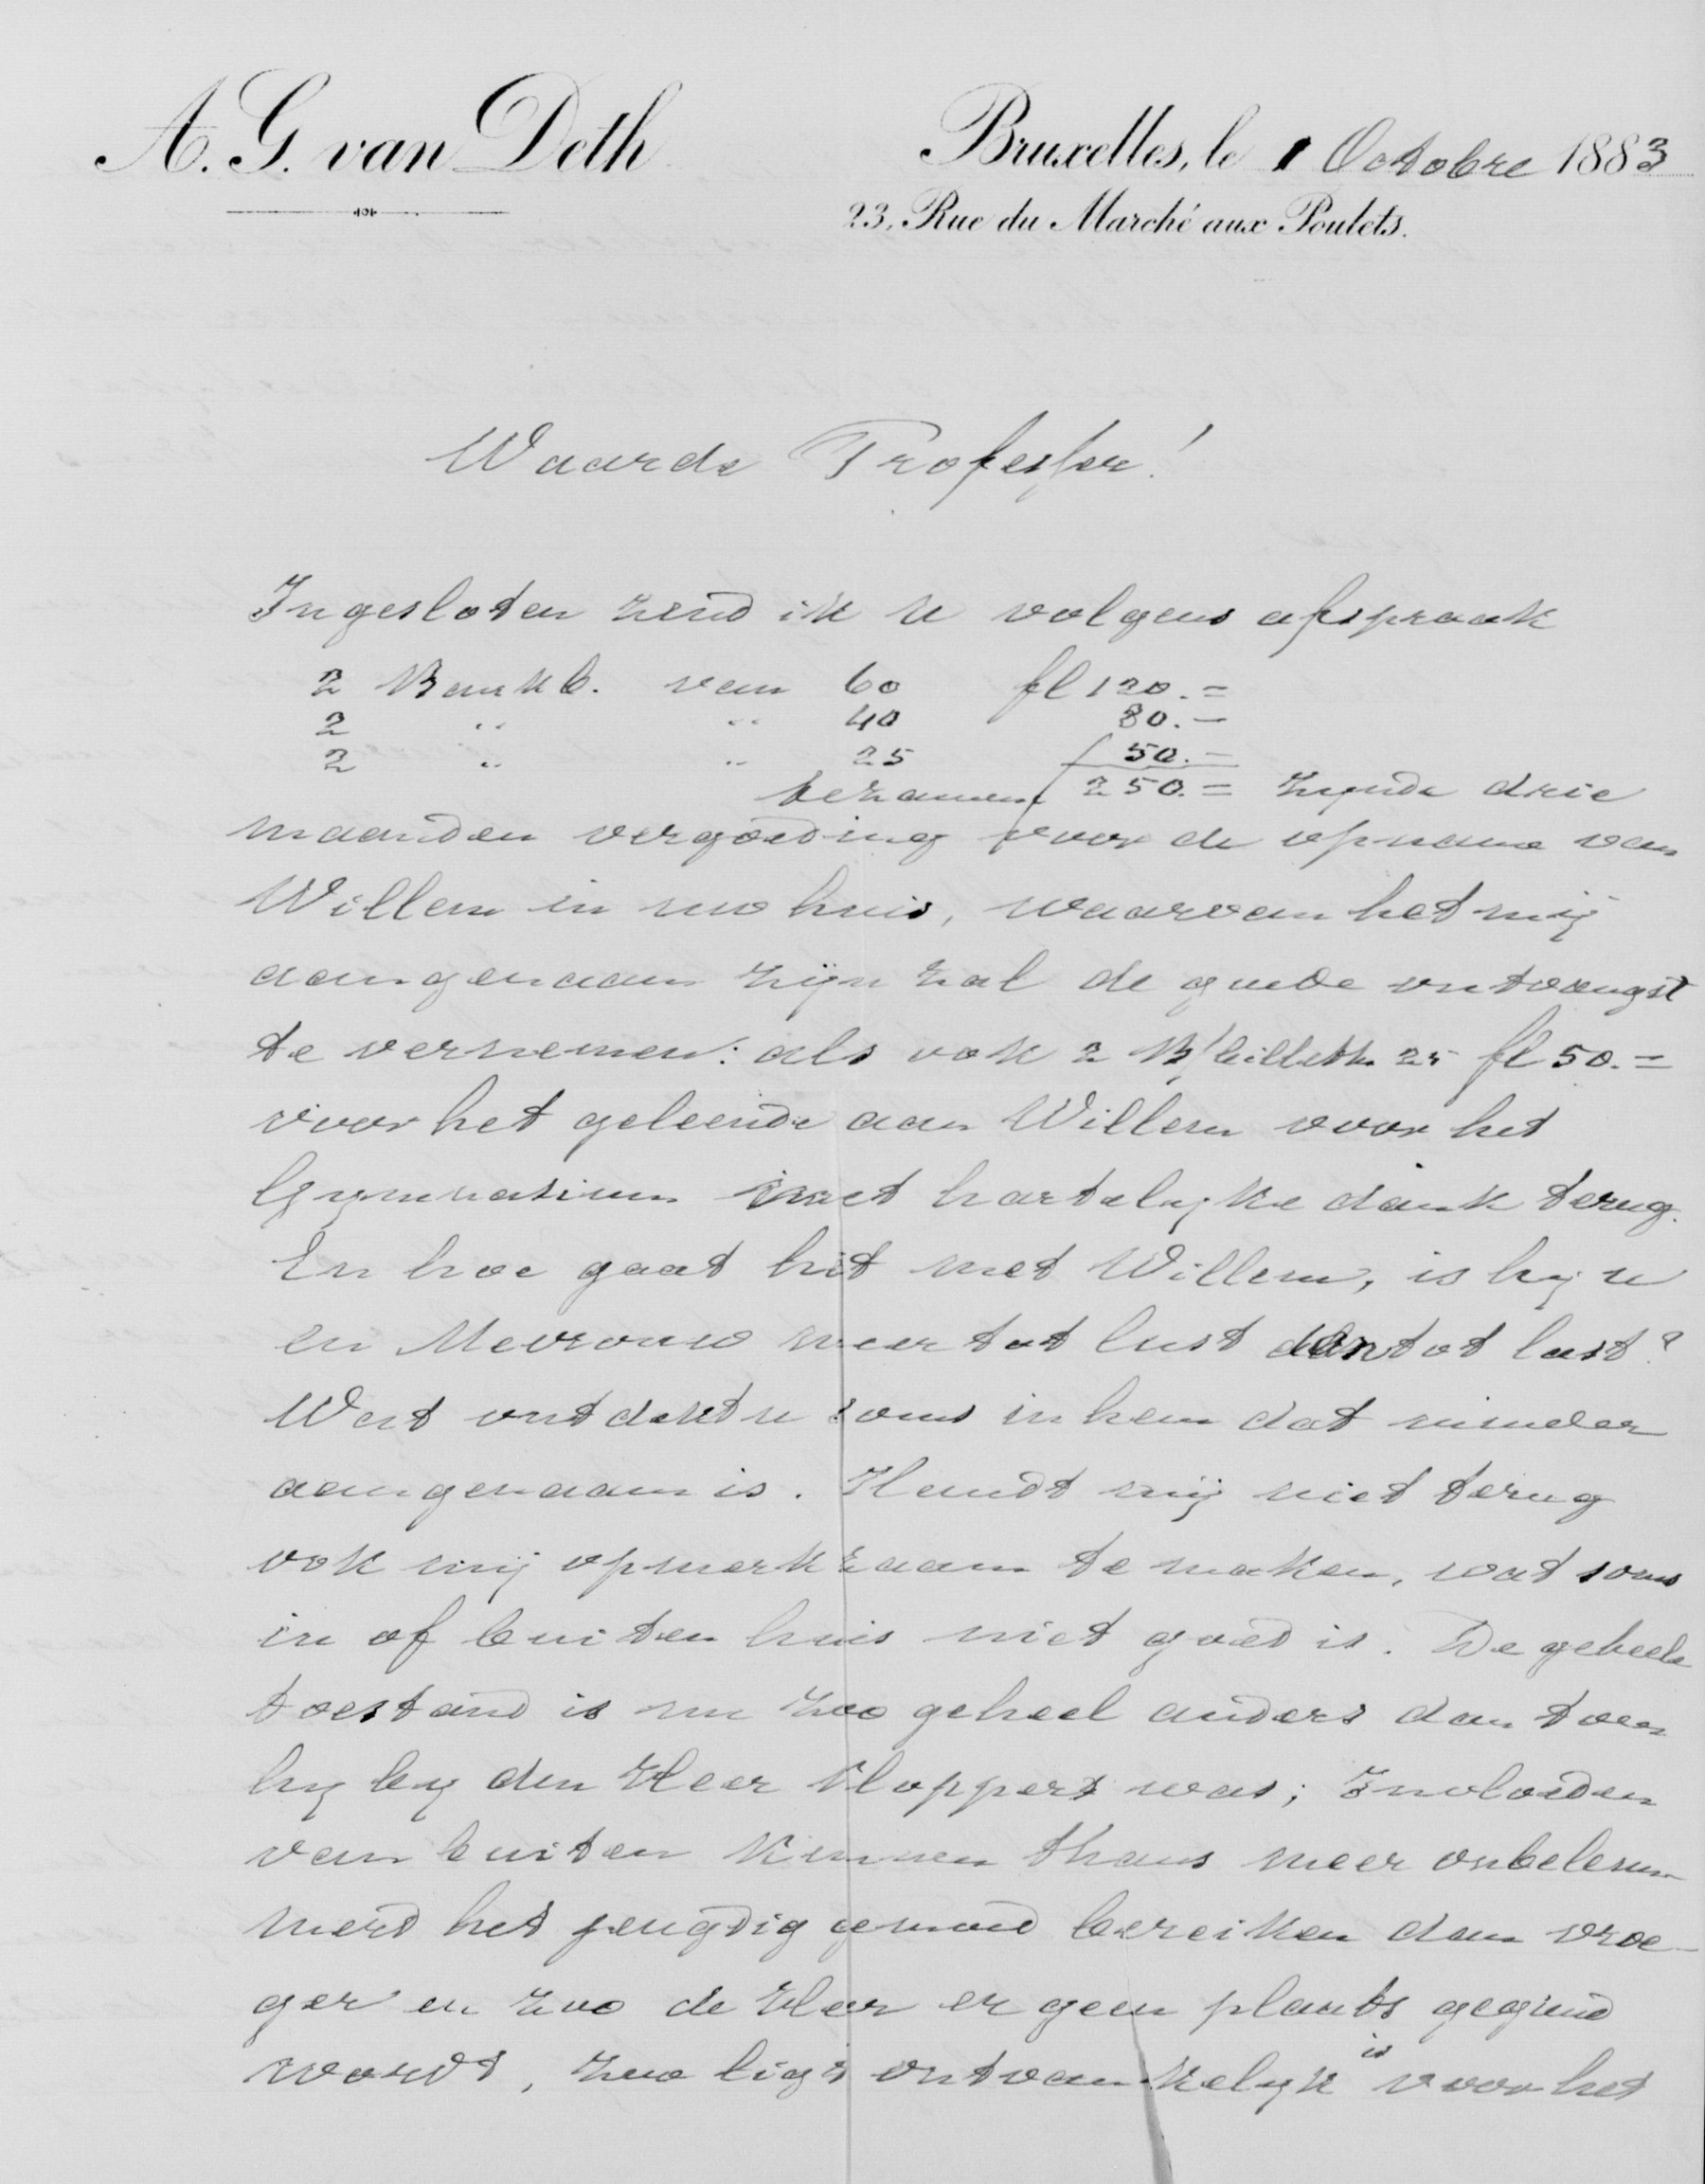 A. G. van Deth
Bruxelles, le 1 Octobre 1883
23, Rue du Marché aux Poulets.
Waarde Professor!
Ingesloten zend ik u volgens afspraak
2 Bankb. van 60 fl 120.=
2 " " 40 80.-
2 " " 25 50.-
tezamen 250.= zynde drie
maanden vergoeding voor de opname van
Willem in uw huis, waarvan het mij
aangenaam zijn zal de goede ontvangst
te vernemen: als ook 2 B/billetten 25 fl 50.=
voor het geleende aan Willem voor het
Gymnasium met hartelyke dank terug.
En hoe gaat het met Willem, is hy u
en Mevrouw meer tot lust dan tot last?
Wat ontdekt u soms in hem dat minder
aangenaam is. Houdt mij niet terug
ook mij opmerkzaam te maken, wat soms
in of buiten huis niet goed is. De geheele
toestand is nu zoo geheel anders dan toen
hy by den Heer Kloppers was; Invloeden
van buiten kunnen thans meer onbelem-
merd het jeugdig gemoed bereiken dan vroe-
ger en zoo de Heer er geen plaats gegund
wordt, zoo ligt ontvankelyk is voor het